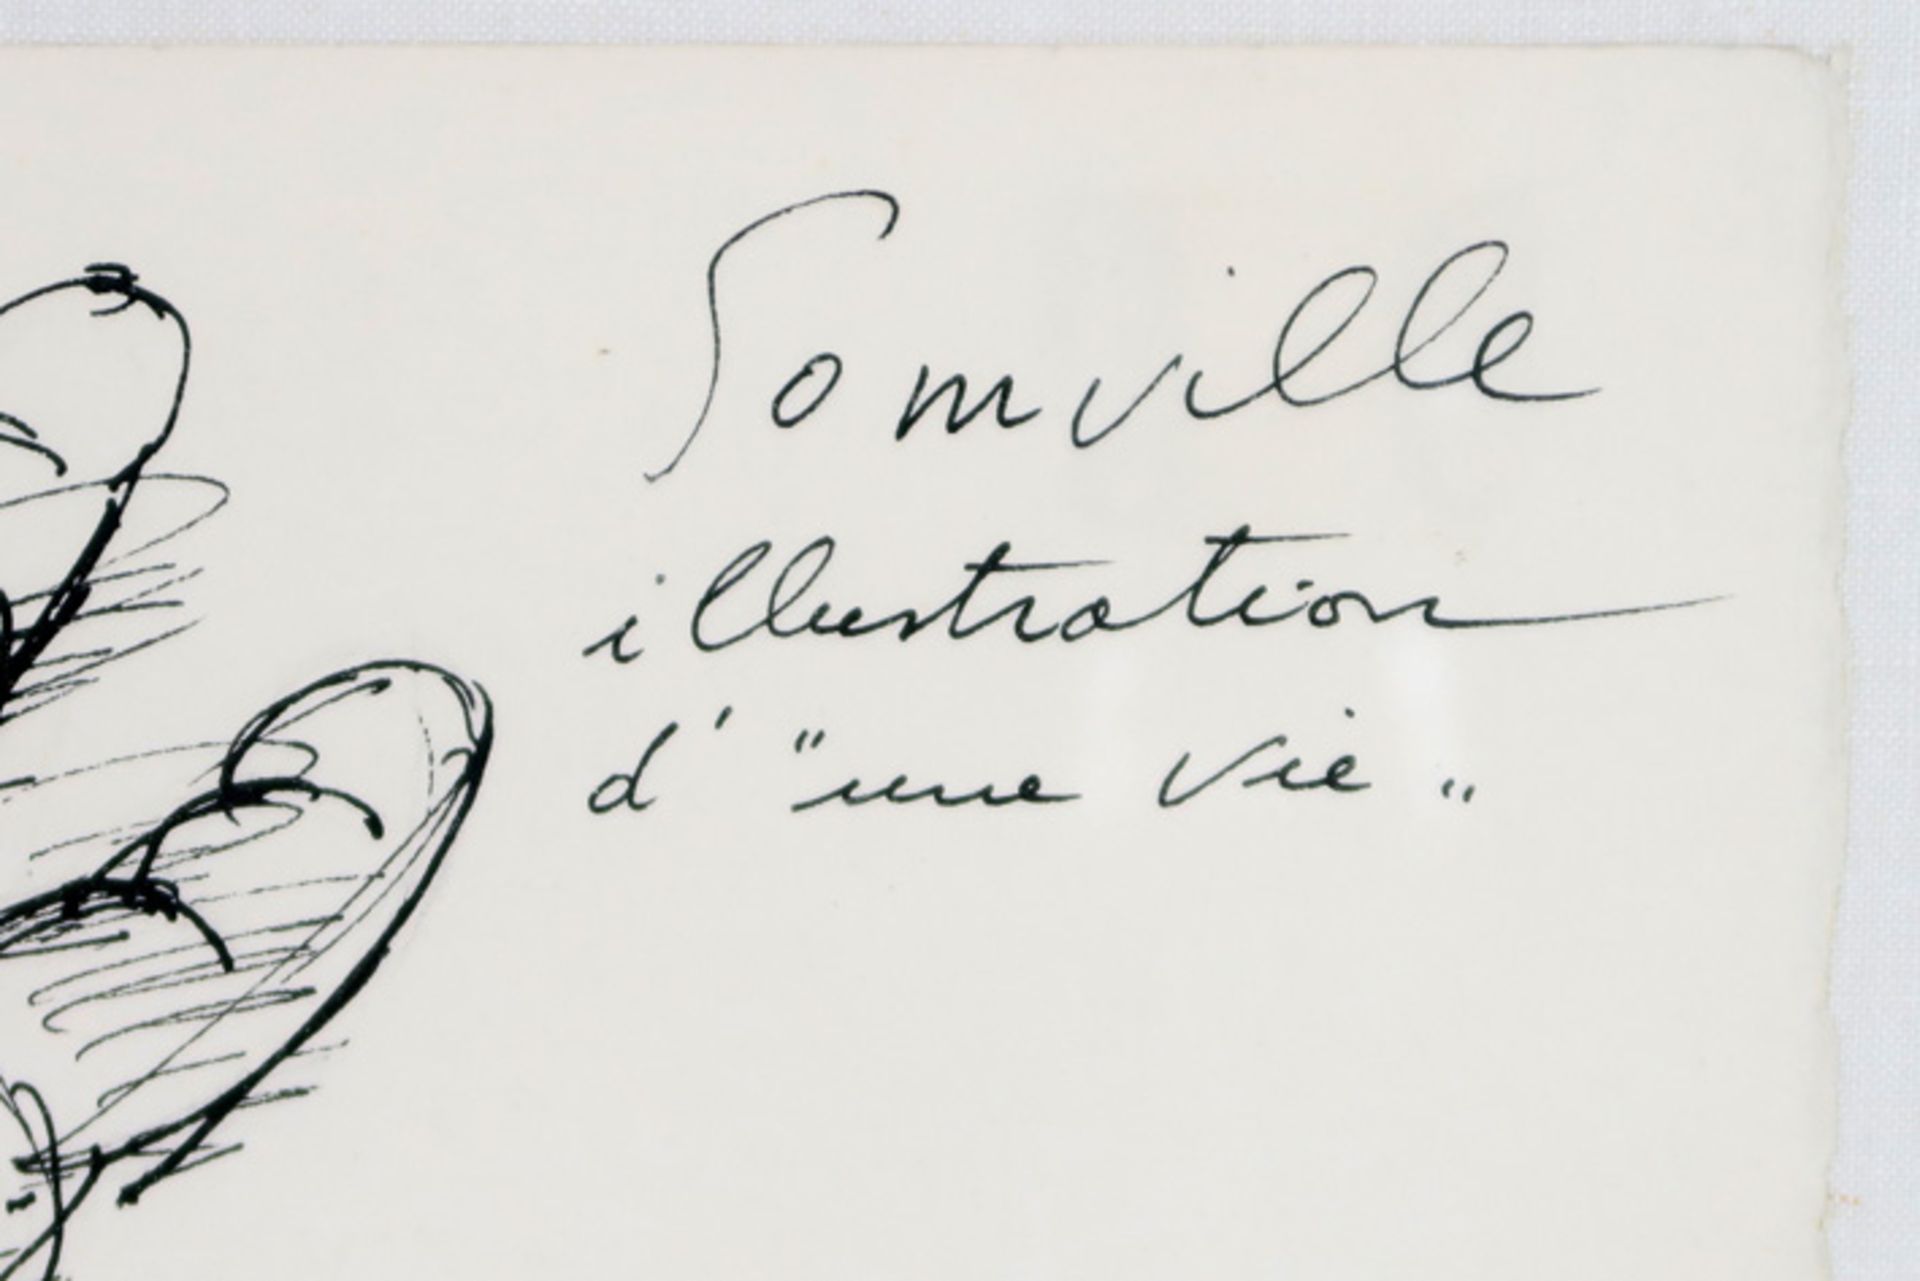 Somville
illustration
d' "une vie"